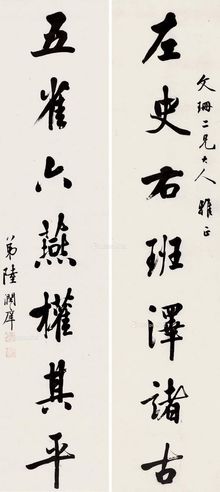 文珊二兄大人 雅正
左史右班澤諸古
五雀六燕權其平
弟陸潤庠